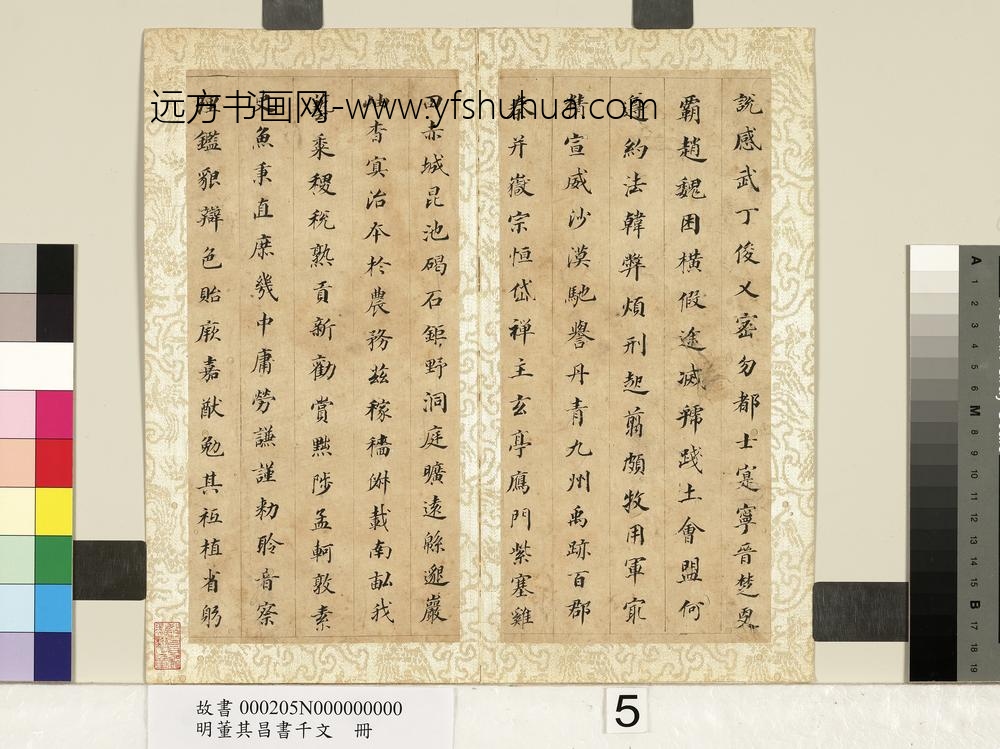 远方书画网-www.yfshuhua.com
說感武丁俊乂密勿都士寔寧晉楚更
霸趙魏困橫假途滅虢踐土會盟何
遵約法韓弊煩刑起翦頗牧用軍㝡
精宣威沙漠馳譽丹青九州禹跡百郡
秦并嶽宗恒岱禪主玄亭鴈門紫塞雞
田赤城昆池碣石鉅野洞庭曠遠緜邈巖
岫杳冥治本於農務茲稼穡俶載南畝我
藝黍稷稅熟貢新勸賞黜陟孟軻敦素
史魚秉直庶幾中庸勞謙謹勑聆音察
理鑑貌辯色貽厥嘉猷勉其祗植省躬
故書 000205N000000000
明董其昌書千文 冊
5
A
1
2
3
4
5
6
M
8
9
10
11
12
13
14
15
B
17
18
19